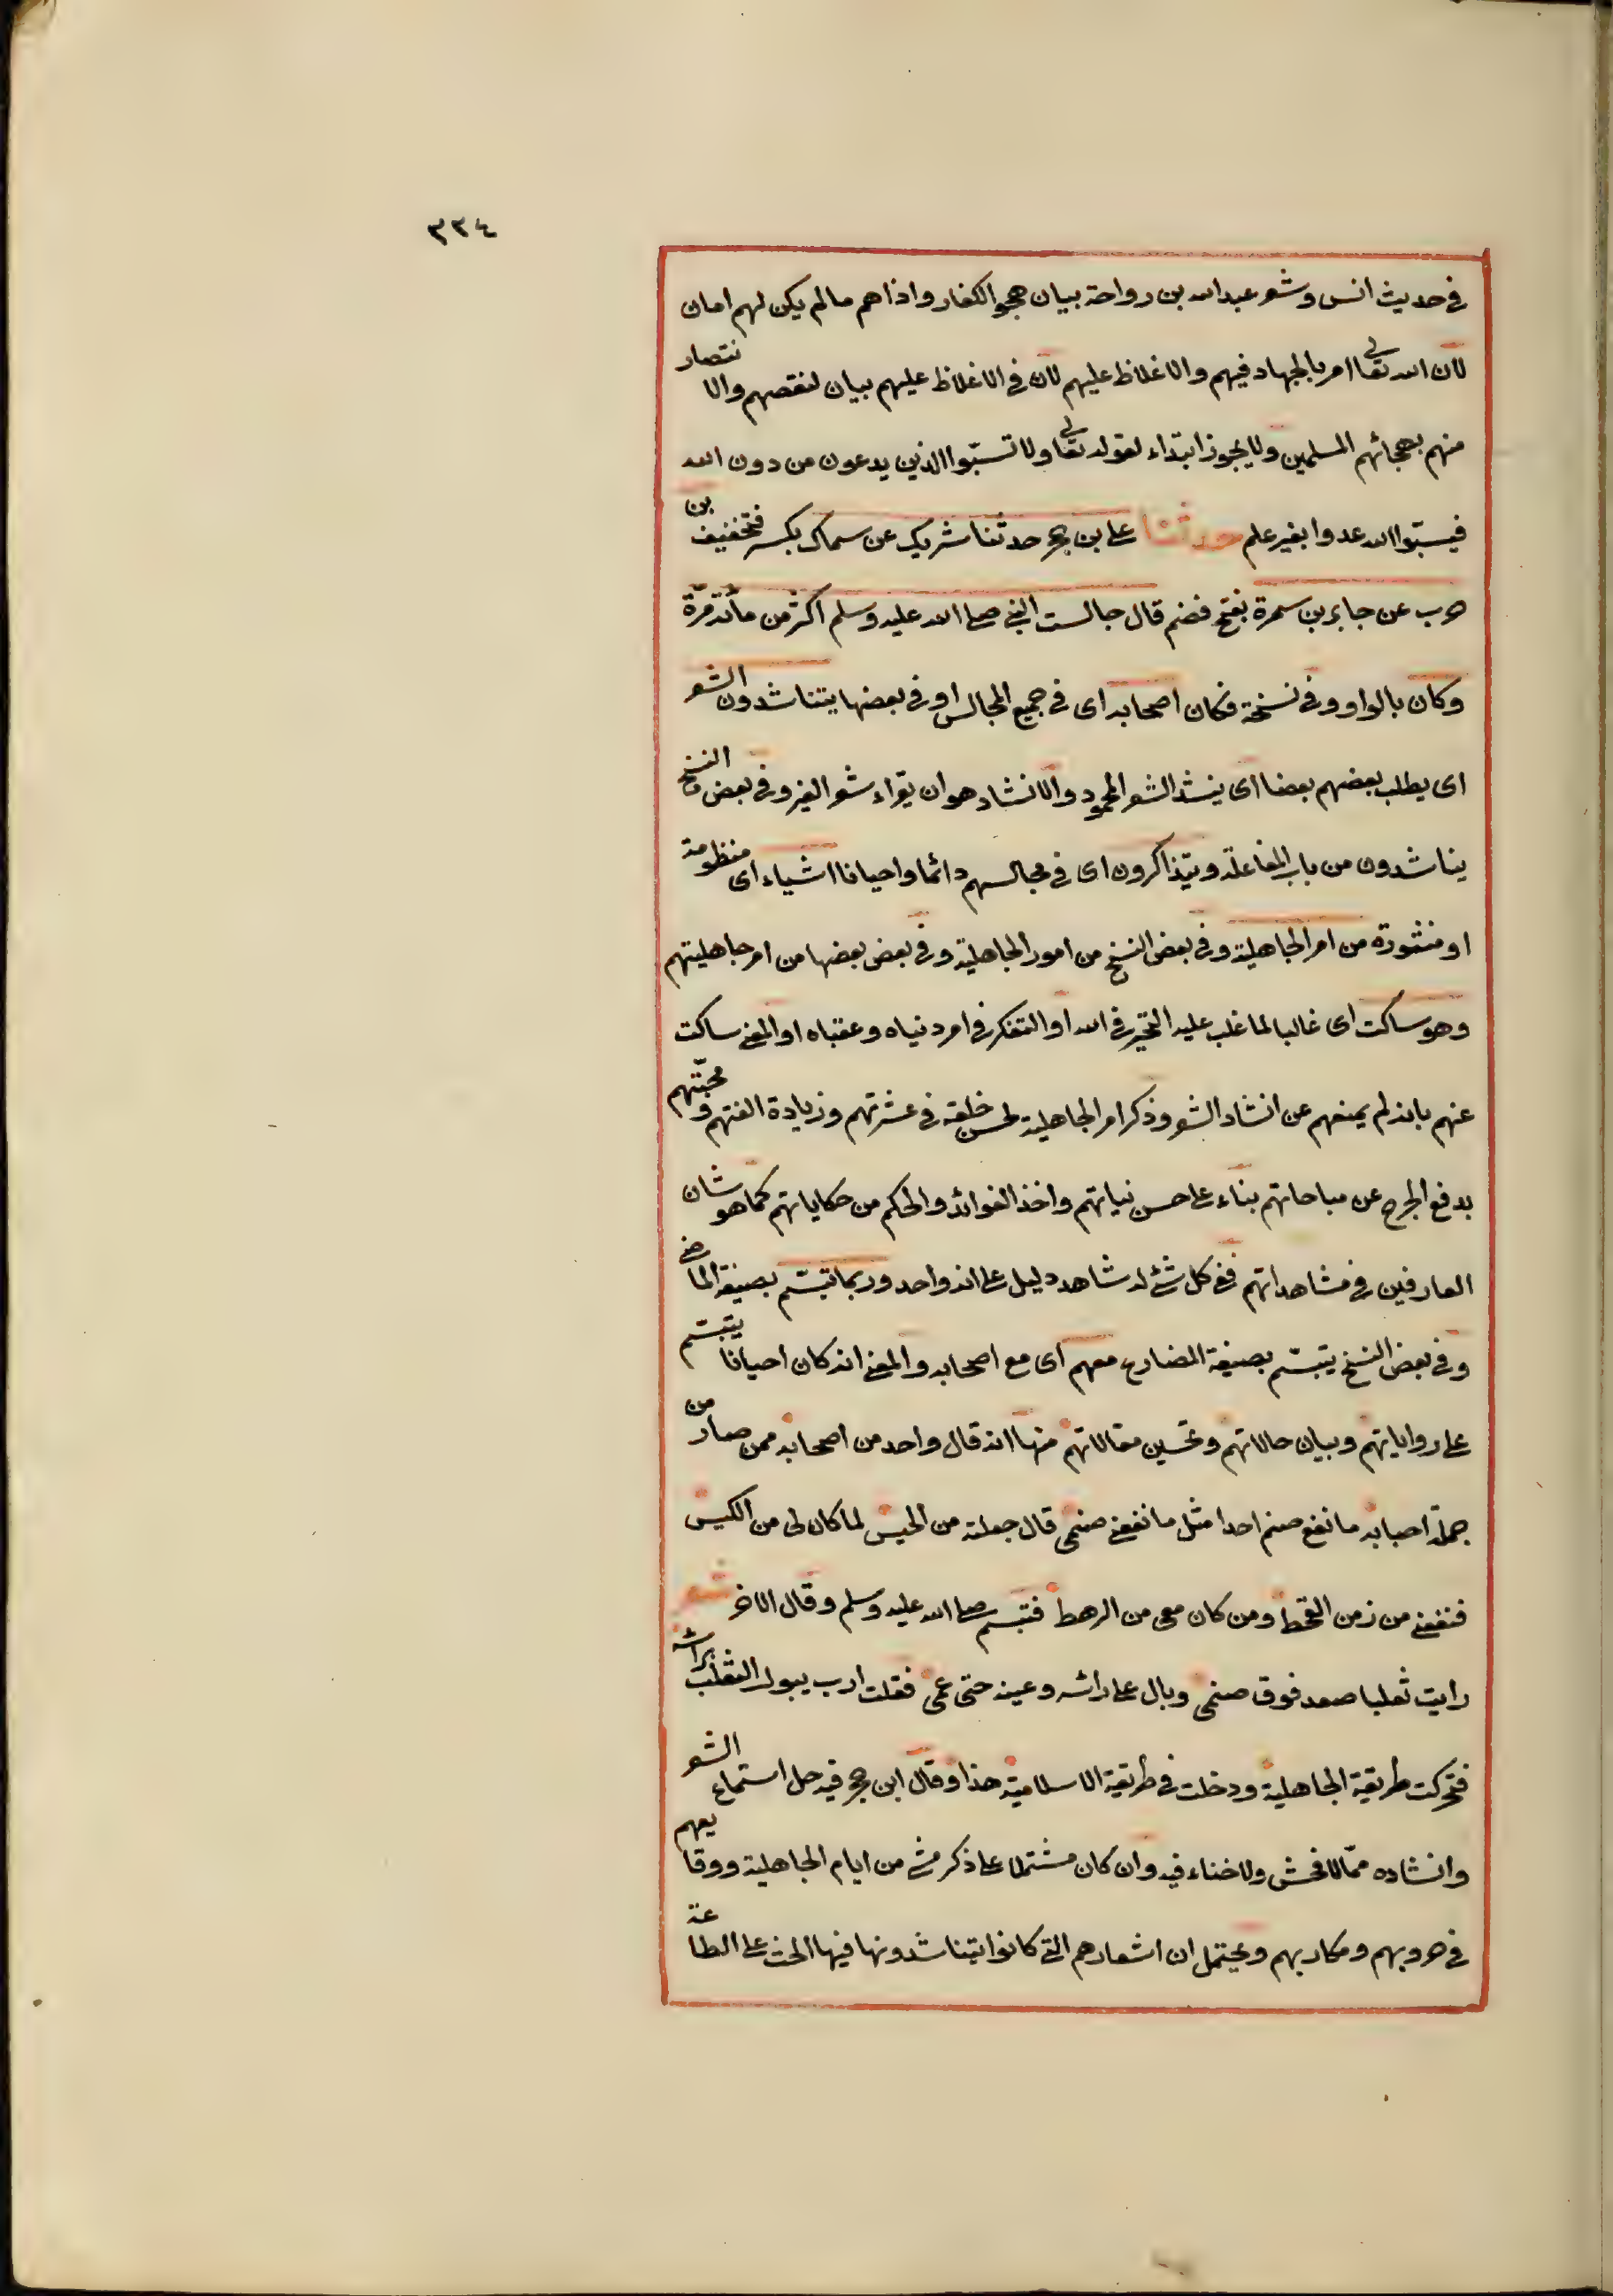 ٣٣٤
في حديث انس وشعر عبد الله بن رواحة بيان هجو الكفار واذاهم ما لم يكن لهم امان
لان الله تعالى امر بالجهاد فيهم والاغلاظ عليهم لان في الاغلاظ عليهم بيان لنقصهم والانتصار
منهم بهجائهم المسلمين ولا يجوز ابتداء لقوله تعالى ولا تسبّوا الذين يدعون من دون الله
فيسبّوا الله عدوا بغير علم حدثنا علي بن حجر حدثنا شريك عن سماك بكسر فتخفيف بن
حرب عن جابر بن سمرة بفتح فضم قال جالست النبي صلى الله عليه وسلم اكثر من مائة مرّة
وكان بالواو وفي نسخة فكان اصحابه اى في جميع المجالس او في بعضها يتناشدون الشعر
اى يطلب بعضهم بعضا اى ينشد الشعر المحمود والانشاد هو ان يقراء شعر الغير وفي بعض النسخ
يناشدون من باب المفاعلة ويتذاكرون اى في مجالسهم دائما واحيانا اشياء اى منظومة
او منثورة من امر الجاهلية وفي بعض النسخ من امور الجاهلية وفي بعض بعضها من امر جاهليتهم
وهو ساكت اى غالبا لما غلب عليه التحير في الله او التفكر في امر دنياه وعقباه او المعنى ساكت
عنهم بانه لم يمنعهم عن انشاد الشعر وذكر امر الجاهلية لحسن خلقه في عشرتهم وزيادة الفتهم ومحبّتهم
بدفع الحرج عن مباحاتهم بناء على حسن نياتهم واخذ الفوائد والحكم من حكاياتهم كما هو شان
العارفين في مشاهداتهم ففي كل شئ له شاهد دليل على انه واحد وربما تبسّم بصيغة الماضي
وفي بعض النسخ يتبسّم بصيغة المضارع معهم اى مع اصحابه والمعنى انه كان احيانا يتبسّم
على رواياتهم وبيان حالاتهم وتحسين مقالاتهم منها انه قال واحد من اصحابه ممن صار من
جملة احبابه ما نفع صنم احدا مثل ما نفعني صنمي قال جعلته من الحيس لما كان لى من الكيس
فنفعني من زمن القحط ومن كان معي من الرهط فتبسم صلى الله عليه وسلم وقال الاخر شعر
رايت ثعلبا صعد فوق صنمي وبال على راسه وعينه حتى عمى فقلت ارب يبول الثعلب براسه
فتركت طريقة الجاهلية ودخلت في طريقة الاسلامية هذا وقال ابن حجر فيه حل استماع الشعر
وانشاده ممّا لا فحش ولا خناء فيه وان كان مشتملا على ذكر شئ من ايام الجاهلية ووقايعهم
في حروبهم ومكاربهم ويحتمل ان اشعارهم التي كانوا يتناشدونها فيها الحث على الطاعة